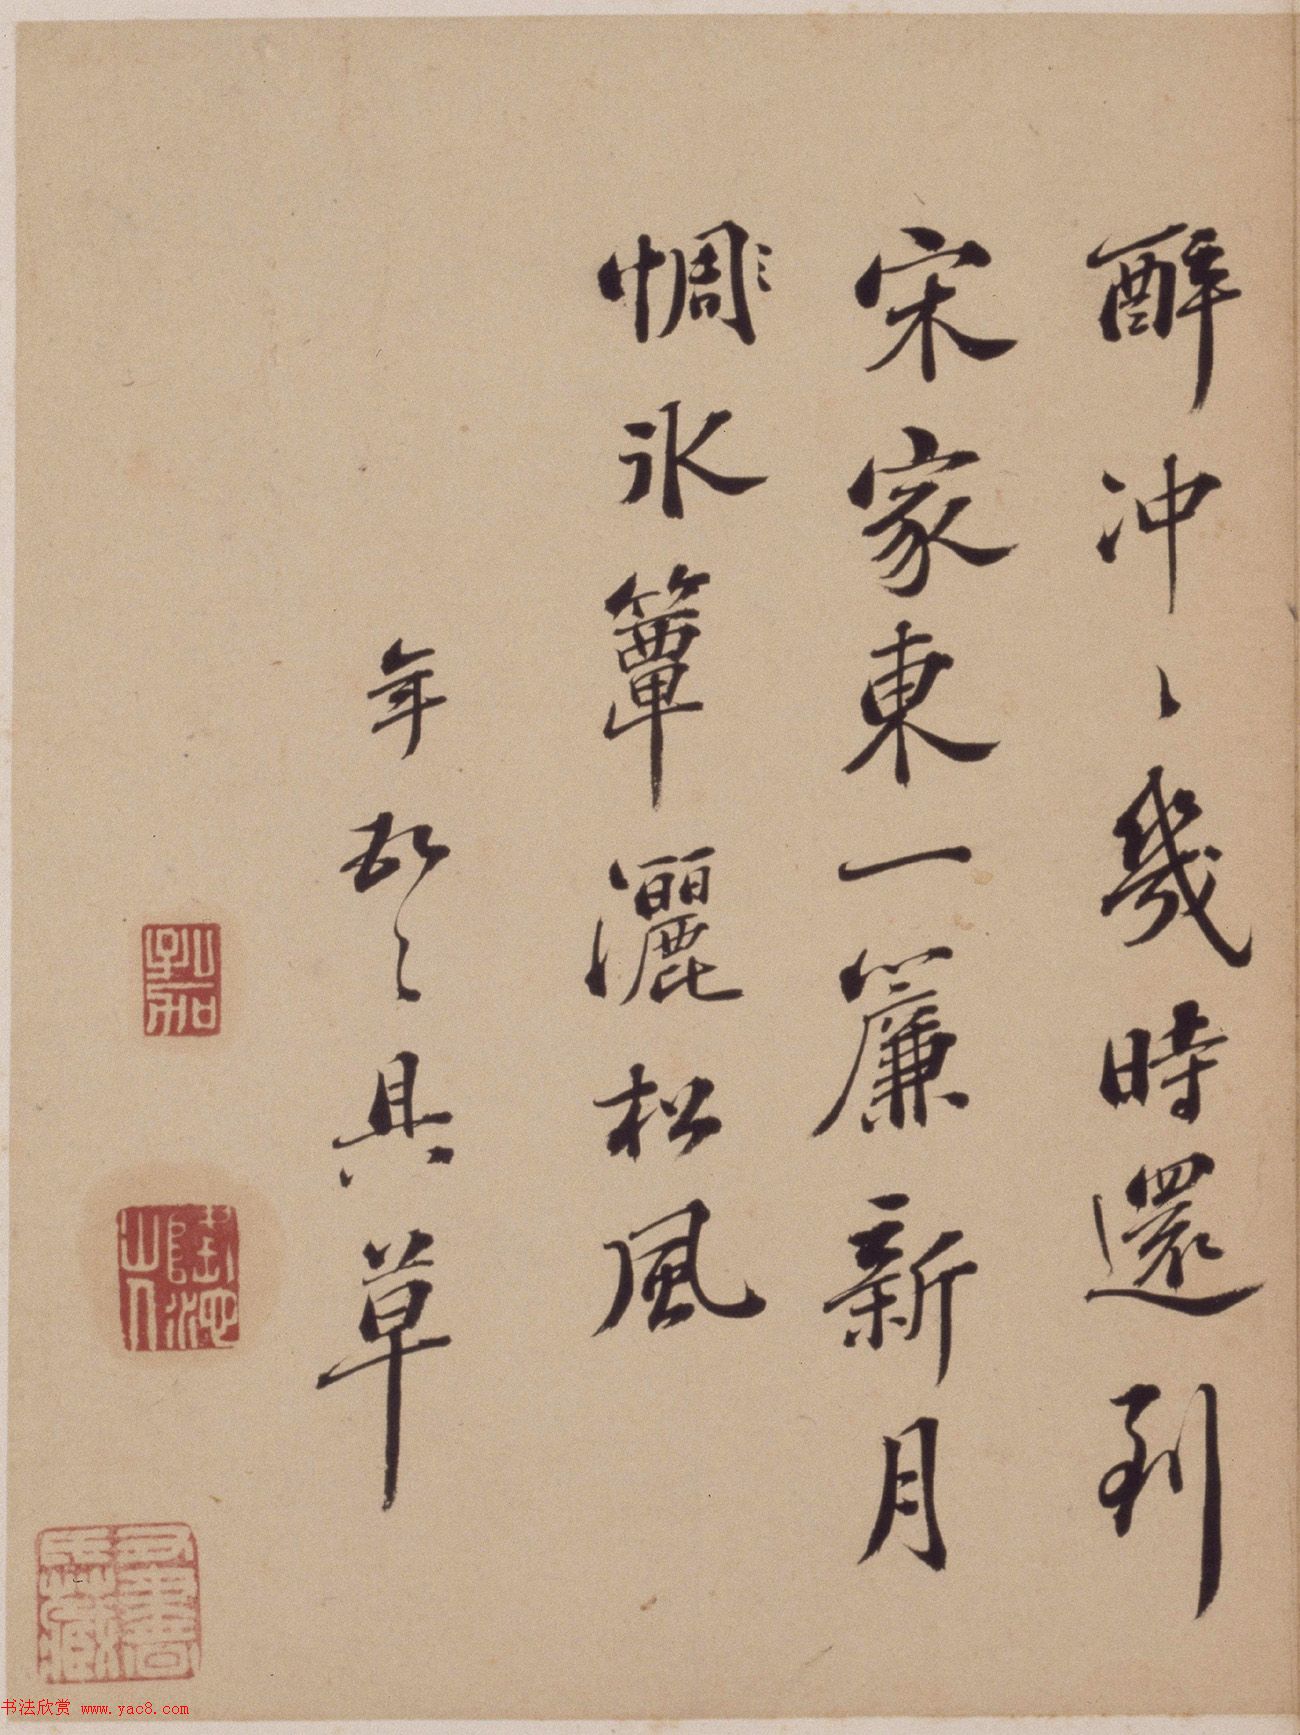 醉冲〻幾時還到
宋家東一簾新月
惆冰簟灑松風
年具草
书法欣赏 www.yac8.com